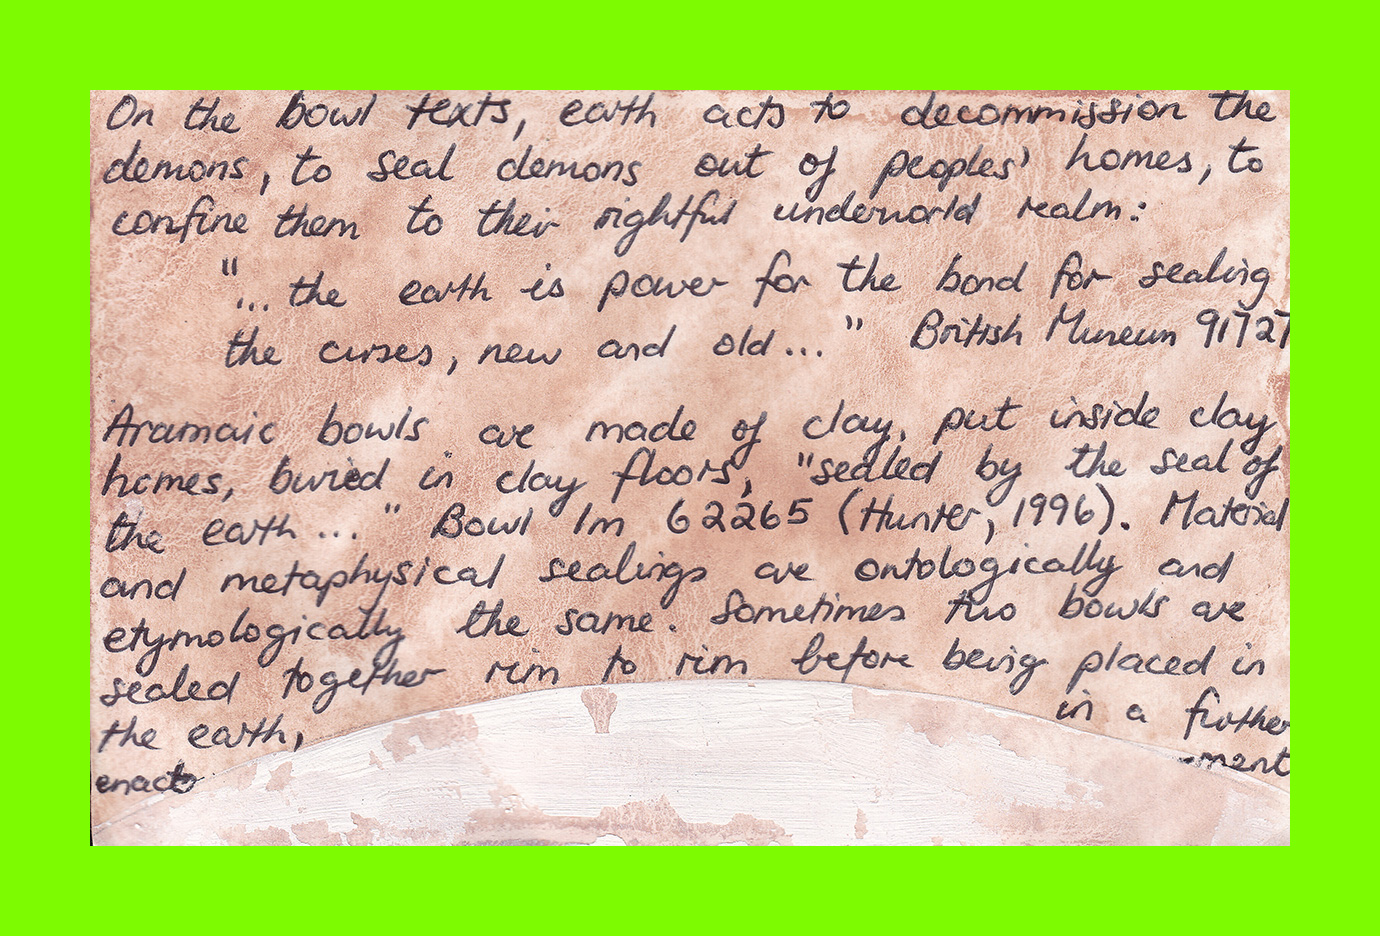 On the bowl texts, earth acts to decommission the
demons, to seal demons out of peoples' homes, to
confine them to their rightful underworld realm:
"... the earth is power for the bond for sealing
the curses, new and old..." British Museum 91727
Aramaic bowls are made of clay, put inside clay
homes, buried in clay floors, "sealed by the seal of
the earth..." Bowl Im 62265 (Hunter, 1996). Material
and metaphysical sealings are ontologically and
etymologically the same. Sometimes two bowls are
sealed together rim to rim before being placed in
the earth, in a further
enacts -ment